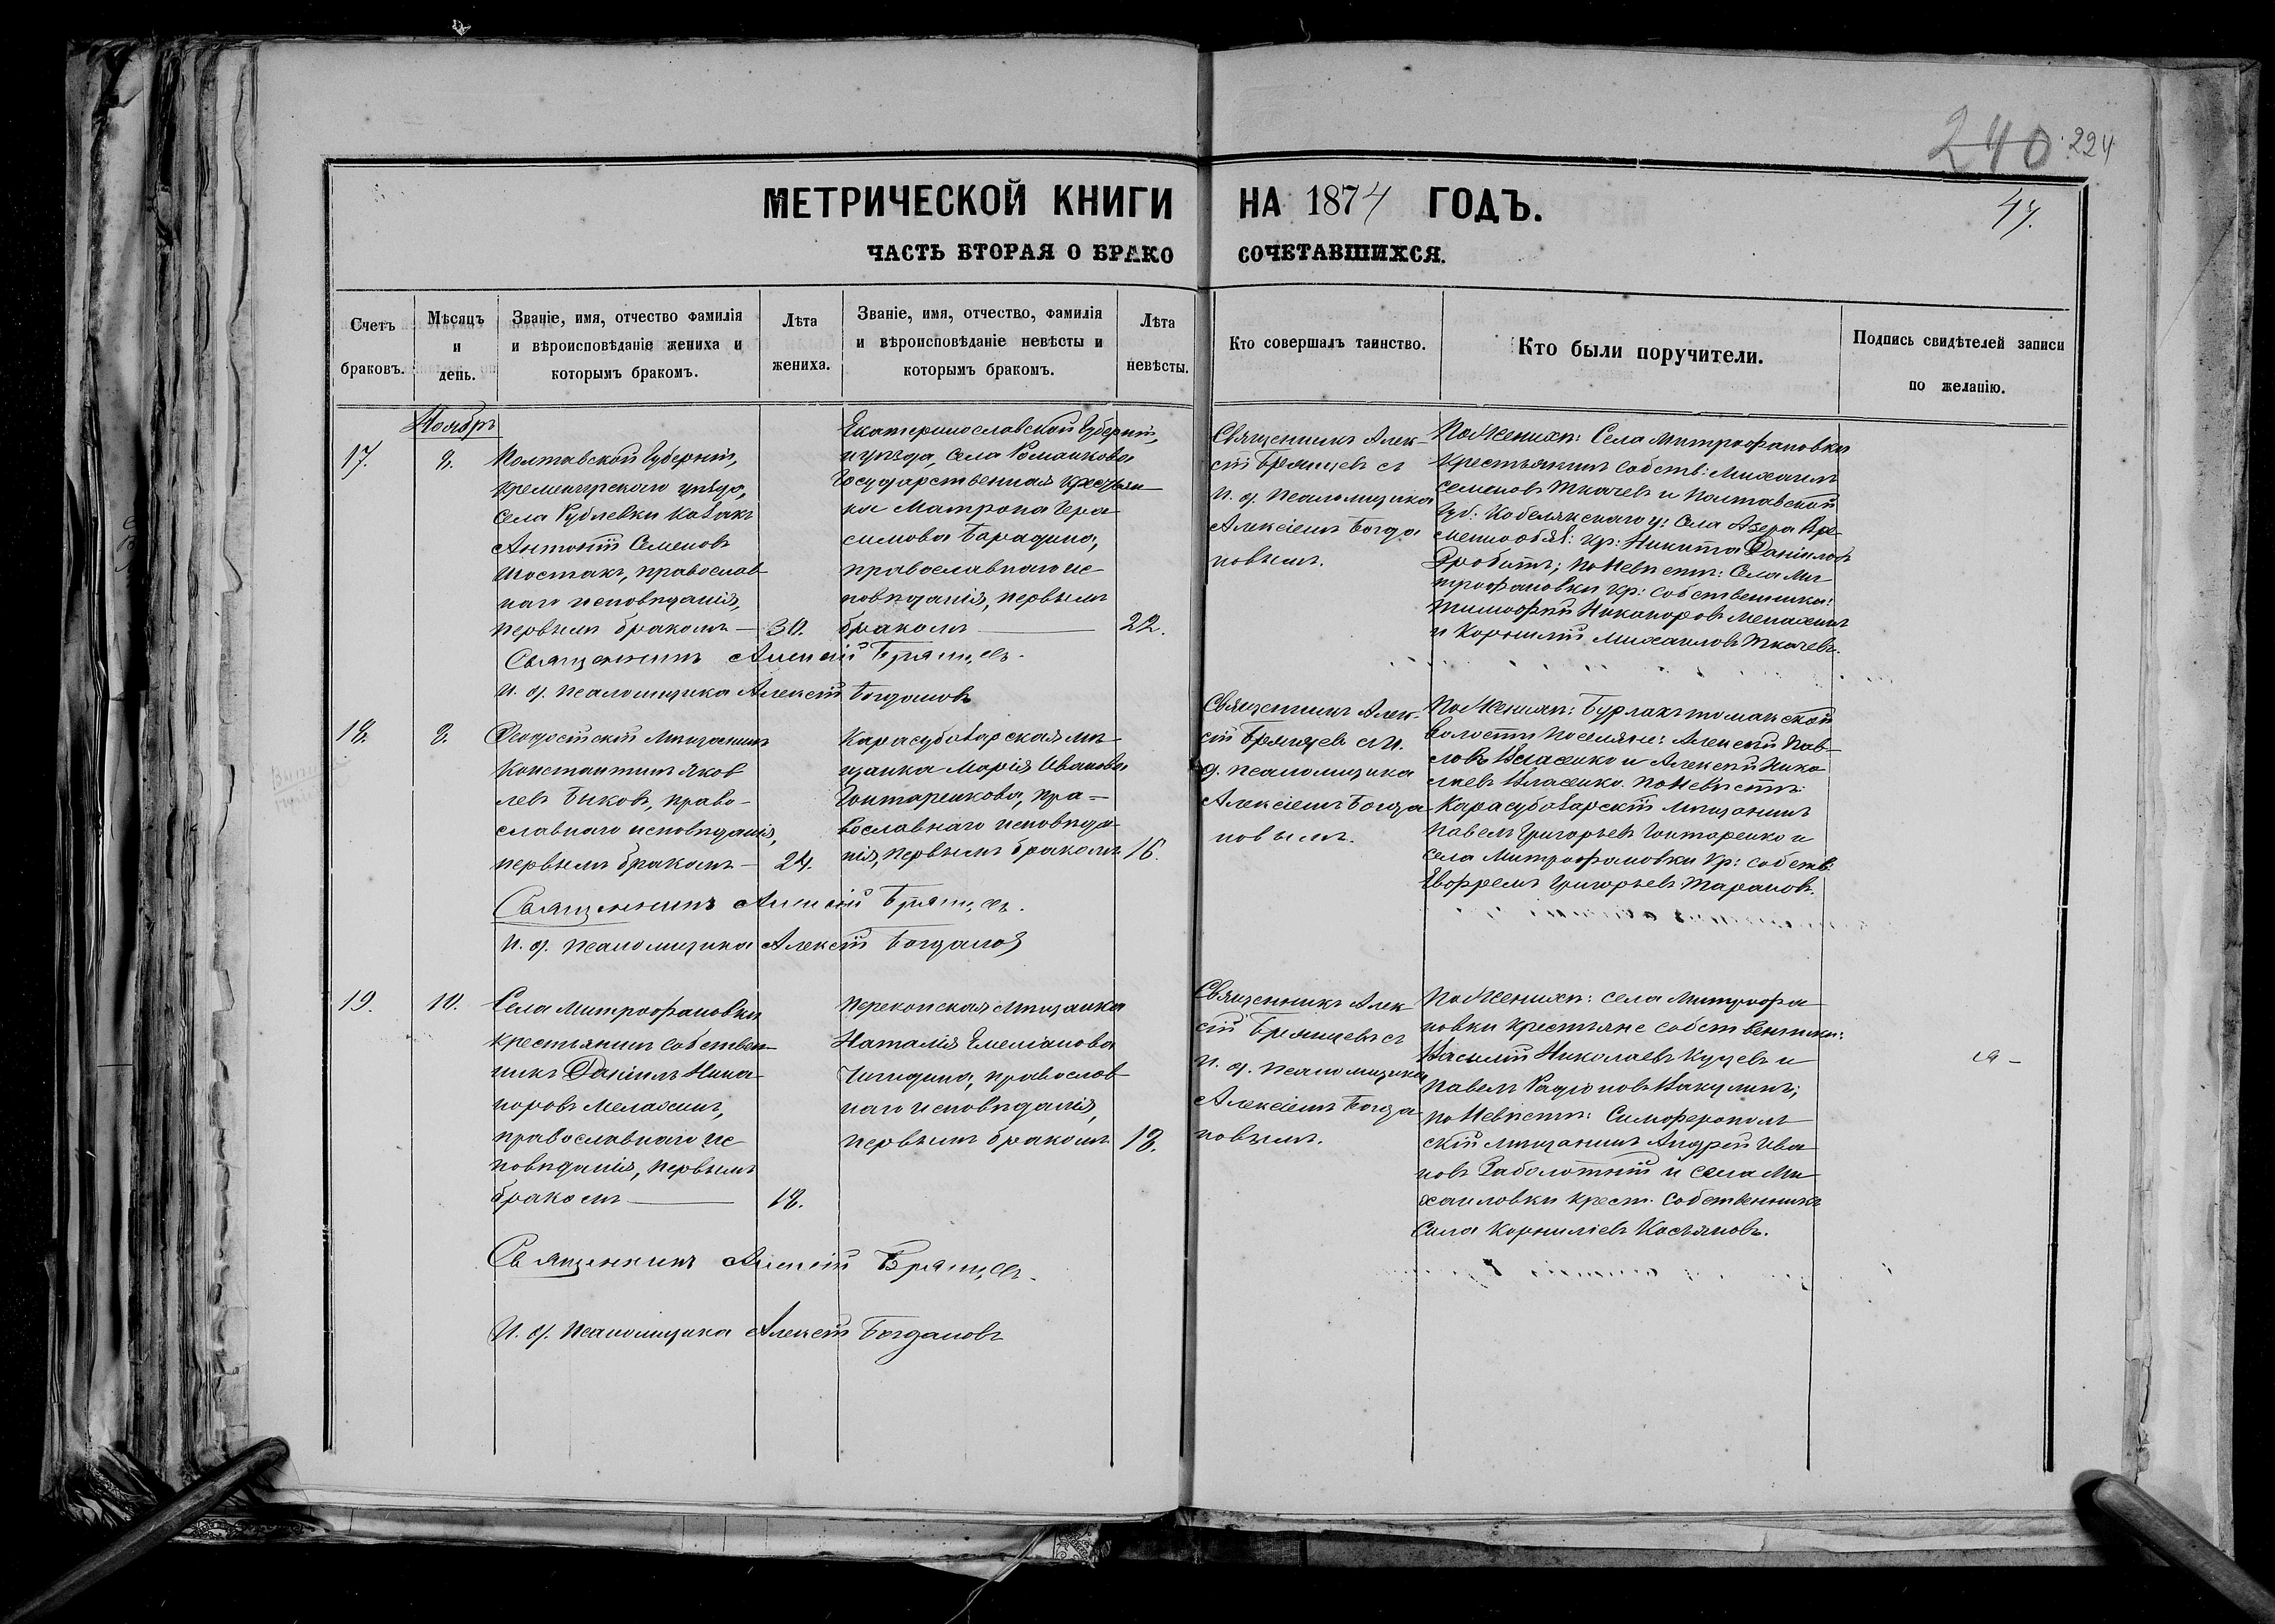 240 224
МЕТРИЧЕСКОЙ КНИГИ НА 1874 ГОДЪ.
47.
ЧАСТЬ ВТОРАЯ О БРАКО СОЧЕТАВШИХСЯ.
Счетъ браковъ.
Мѣсяцъ и день.
Званіе, имя, отчество фамилія и вѣроисповѣданіе жениха и которымъ бракомъ.
Лѣта жениха.
Званіе, имя, отчество, фамилія и вѣроисповѣданіе невѣсты и которымъ бракомъ.
Лѣта невѣсты.
Кто совершалъ таинство.
Кто были поручители.
Подпись свидѣтелей записи по желанію.
Ноябрь
17.
8.
Полтавской Губерніи,
Кременчугскаго уѣзда,
села Рублевки козакъ
Антоній Семеновъ
Шостакъ, православ-
наго исповѣданія,
первымъ бракомъ —
30.
Екатеринославской Губерніи,
и уѣзда, села Романкова
Государственная крестьян-
ка Матрона Гера-
симова Барадина,
православнаго ис-
повѣданія, первымъ
бракомъ —
22.
Священникъ Алек-
сій Брянцевъ съ
и. д. псаломщика
Алексіемъ Богда
новымъ.
По Женихѣ: Села Митрофановки
крестьянинъ собств: Михаилъ
Семеновъ Ткачевъ и Полтавской
Губ: Кобелякскаго у: села Азера Вре-
меннообяз: кр: Никита Даніиловъ
Дробитъ; по Невѣстѣ: Села Ми-
трофановки кр: собственники:
Тимофій Никаноровъ Мелахинъ
и Корнилій Михаиловъ Ткачевъ.
Священникъ Алексій Брянцевъ.
И. д. псаломщика Алексій Богдановъ
18.
8.
Ѳеодосійскій мѣщанинъ
Константинъ Яков
левъ Быковъ, право-
славнаго исповѣданія,
первымъ бракомъ —
24.
Карасубазарская мѣ-
щанка Марія Иванова
Гонтаренкова, пра-
вославнаго исповѣда-
нія, первымъ бракомъ
16.
Священникъ Алек-
сій Брянцевъ съ и.
д. псаломщика
Алексіемъ Богда
новымъ.
По Женихѣ: Бурлакъ томакской
волости поселяне: Алексій Пав-
ловъ Власенко и Алексій Нико
лаевъ Власенко. По Невѣстѣ:
Карасубазарскій мѣщанинъ
Павелъ Григорьевъ Гонтаренко и
села Митрофановки кр: собств:
Евфремъ Григорьевъ Тарановъ.
Священникъ Алексій Брянцевъ.
И. д. псаломщика Алексій Богданов
19.
10.
Села Митрофановки
крестьянинъ собствен-
никъ Даніилъ Ника-
норовъ Мелахинъ,
православнаго ис-
повѣданія, первымъ
бракомъ —
18.
Перекопская мѣщанка
Наталія Емеліанова
Чигидина, православ-
наго исповѣданія,
первымъ бракомъ
18.
Священникъ Алек
сій Брянцевъ съ
и. д. псаломщика
Алексіемъ Богда-
новымъ.
По Женихѣ: села Митрофа-
новки крестьяне собственники:
Василій Николаевъ Куцевъ и
Павелъ Радіоновъ Вакулинъ;
по Невѣстѣ: Симферополь-
скій мѣщанинъ Андрей Ива-
новъ Заболотній и села Ми-
хаиловки крест. собственникъ
Сила Корниліевъ Касьяновъ.
Священникъ Алексій Брянцевъ.
И. д. псаломщика Алексій Богдановъ